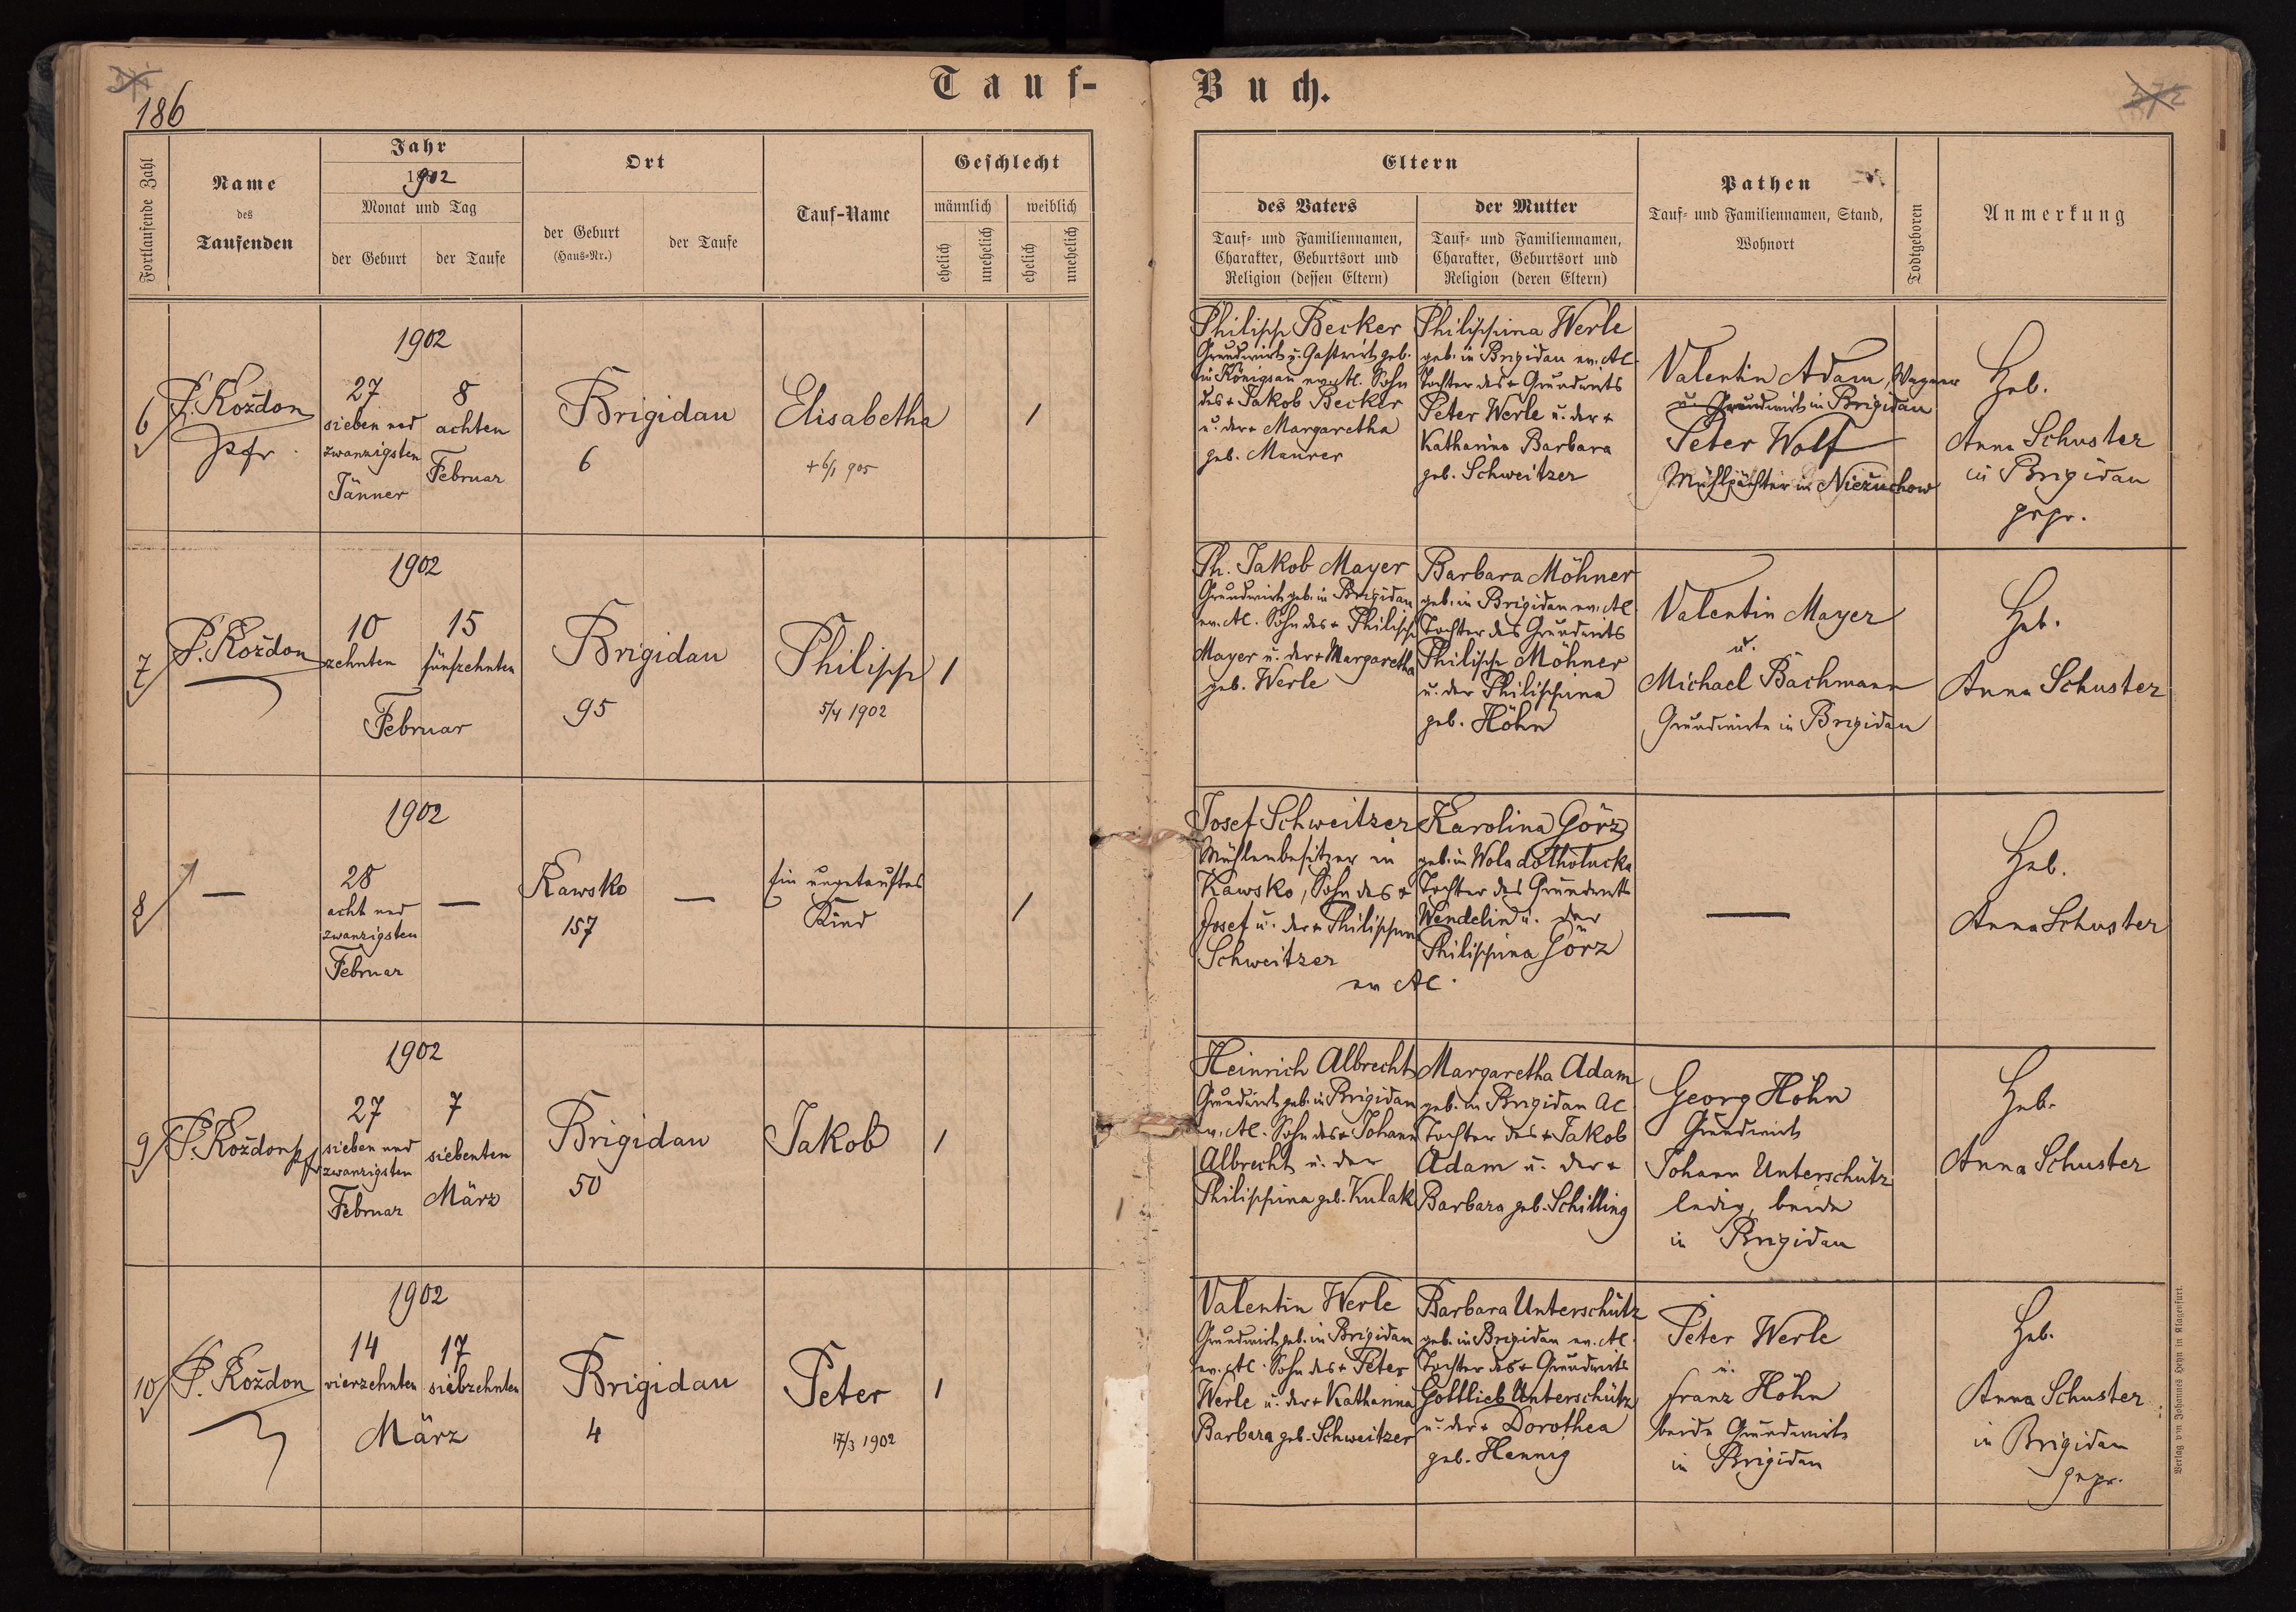 186
Tauf-
Buch.
Fortlaufende Zahl
Name
des
Taufenden
Jahr
1902
Monat und Tag
der Geburt
der Taufe
Ort
der Geburt
(Haus-Nr.)
der Taufe
Tauf-Name
Geschlecht
männlich
weiblich
ehelich
unehelich
ehelich
unehelich
Eltern
des Vaters
Tauf- und Familiennamen,
Charakter, Geburtsort und
Religion (dessen Eltern)
der Mutter
Tauf- und Familiennamen,
Charakter, Geburtsort und
Religion (deren Eltern)
Pathen
Tauf- und Familiennamen, Stand,
Wohnort
Todtgeboren
Anmerkung
6
P. Roždon
Pfr.
1902
27
sieben und
zwanzigsten
Jänner
8
achten
Februar
Brigidau
6
Elisabetha
+ 6/1 905
1
Philipp Becker
Grundwirt u. Gastwirt geb.
in Königsau ev. AC. Sohn
des + Jakob Becker
u. der + Margaretha
geb. Maurer
Philippina Werle
geb. in Brigidau ev. AC.
Tochter des + Grundwirts
Peter Werle u. der +
Katharina Barbara
geb. Schweitzer
Valentin Adam, Wagner
u. Grundwirt in Brigidau
Peter Wolf
Mühlpächter in Niezuchow
Heb.
Anna Schuster
in Brigidau
gepr.
7
P. Roždon
1902
10
zehnten
15
fünfzehnten
Februar
Brigidau
95
Philipp
5/4 1902
1
Ph. Jakob Mayer
Grundwirt geb. in Brigidau
ev. AC. Sohn des + Philipp
Mayer u. der + Margaretha
geb. Werle
Barbara Möhner
geb. in Brigidau ev. AC.
Tochter des Grundwirts
Philipp Möhner
u. der Philippina
geb. Höhn
Valentin Mayer
u.
Michael Bachmann
Grundwirte in Brigidau
Heb.
Anna Schuster
8
—
1902
28
acht und
zwanzigsten
Februar
—
Kawsko
157
—
Ein ungetauftes
Kind
1
Josef Schweitzer
Mühlenbesitzer in
Kawsko, Sohn des +
Josef u. der + Philippina
Schweitzer
ev AC.
Karolina Görz
geb. in Wola dołhołucka
Tochter des Grundwirts
Wendelin u. der
Philippina Görz
—
Heb.
Anna Schuster
9
P. Roždon pf
1902
27
sieben und
zwanzigsten
Februar
7
siebenten
März
Brigidau
50
Jakob
1
Heinrich Albrecht
Grundwirt geb. in Brigidau
ev. AC. Sohn des + Johann
Albrecht u. der
Philippina geb. Kulak
Margaretha Adam
geb. in Brigidau AC
Tochter des + Jakob
Adam u. der +
Barbara geb. Schilling
Georg Höhn
Grundwirt
Johann Unterschütz
ledig, beide
in Brigidau
Heb.
Anna Schuster
10
P. Roždon
1902
14
vierzehnten
17
siebzehnten
März
Brigidau
4
Peter
17/3 1902
1
Valentin Werle
Grundwirt geb. in Brigidau
ev. AC. Sohn des + Peter
Werle u. der + Katharina
Barbara geb. Schweitzer
Barbara Unterschütz
geb. in Brigidau ev. AC.
Tochter des + Grundwirts
Gottlieb Unterschütz
u. der + Dorothea
geb. Hennig
Peter Werle
u.
Franz Höhn
beide Grundwirte
in Brigidau
Heb.
Anna Schuster
in Brigidau
gepr.
Verlag von Johannes Heyn in Klagenfurt.